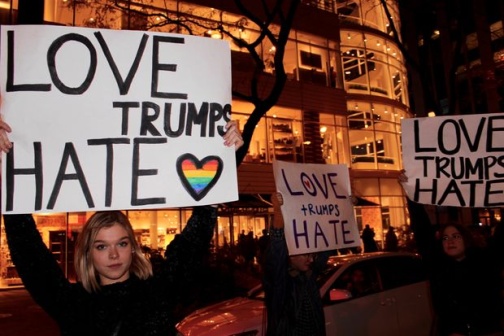 LOVE
TRUMPS
HATE
LOVE
tRUMPS
HATE
LOVE
TRUMPS
HATE